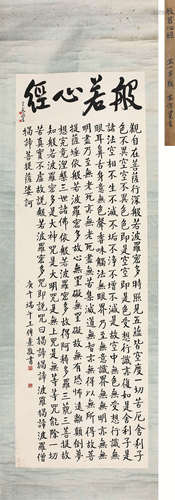 般若心經
觀自在菩薩行深般若波羅密多時照見五蘊皆空度一切苦厄舍利子
色不異空空不異色色即是空空即是色受想行識亦復如是舍利子是
諸法空相不生不滅不垢不淨不增不減是故空中無色無受想行識無
眼耳鼻舌身意無色聲香味觸法無眼界乃至無意識界無無明亦無無
明盡乃至無老死亦無老死盡無苦集滅道無智亦無得以無所得故菩
提薩埵依般若波羅密多故心無罣礙無罣礙故無有恐怖遠離顛倒夢
想究竟涅槃三世諸佛依般若波羅密多故得阿耨多羅三藐三菩提故
知般若波羅密多是大神咒是大明咒是無上咒是無等等咒能除一切
苦真實不虛故說般若波羅密多咒即說咒曰揭諦揭諦波羅揭諦波羅僧
揭諦菩提薩婆訶
庚午端午王